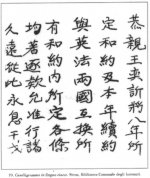 恭親王奕訢將八年所
定和約及本年續約
與英法兩國互換所
有和約內所定各條
均著逐款允准行諸
久遠從此永息干戈
in lingua cinese. Roma, Biblioteca